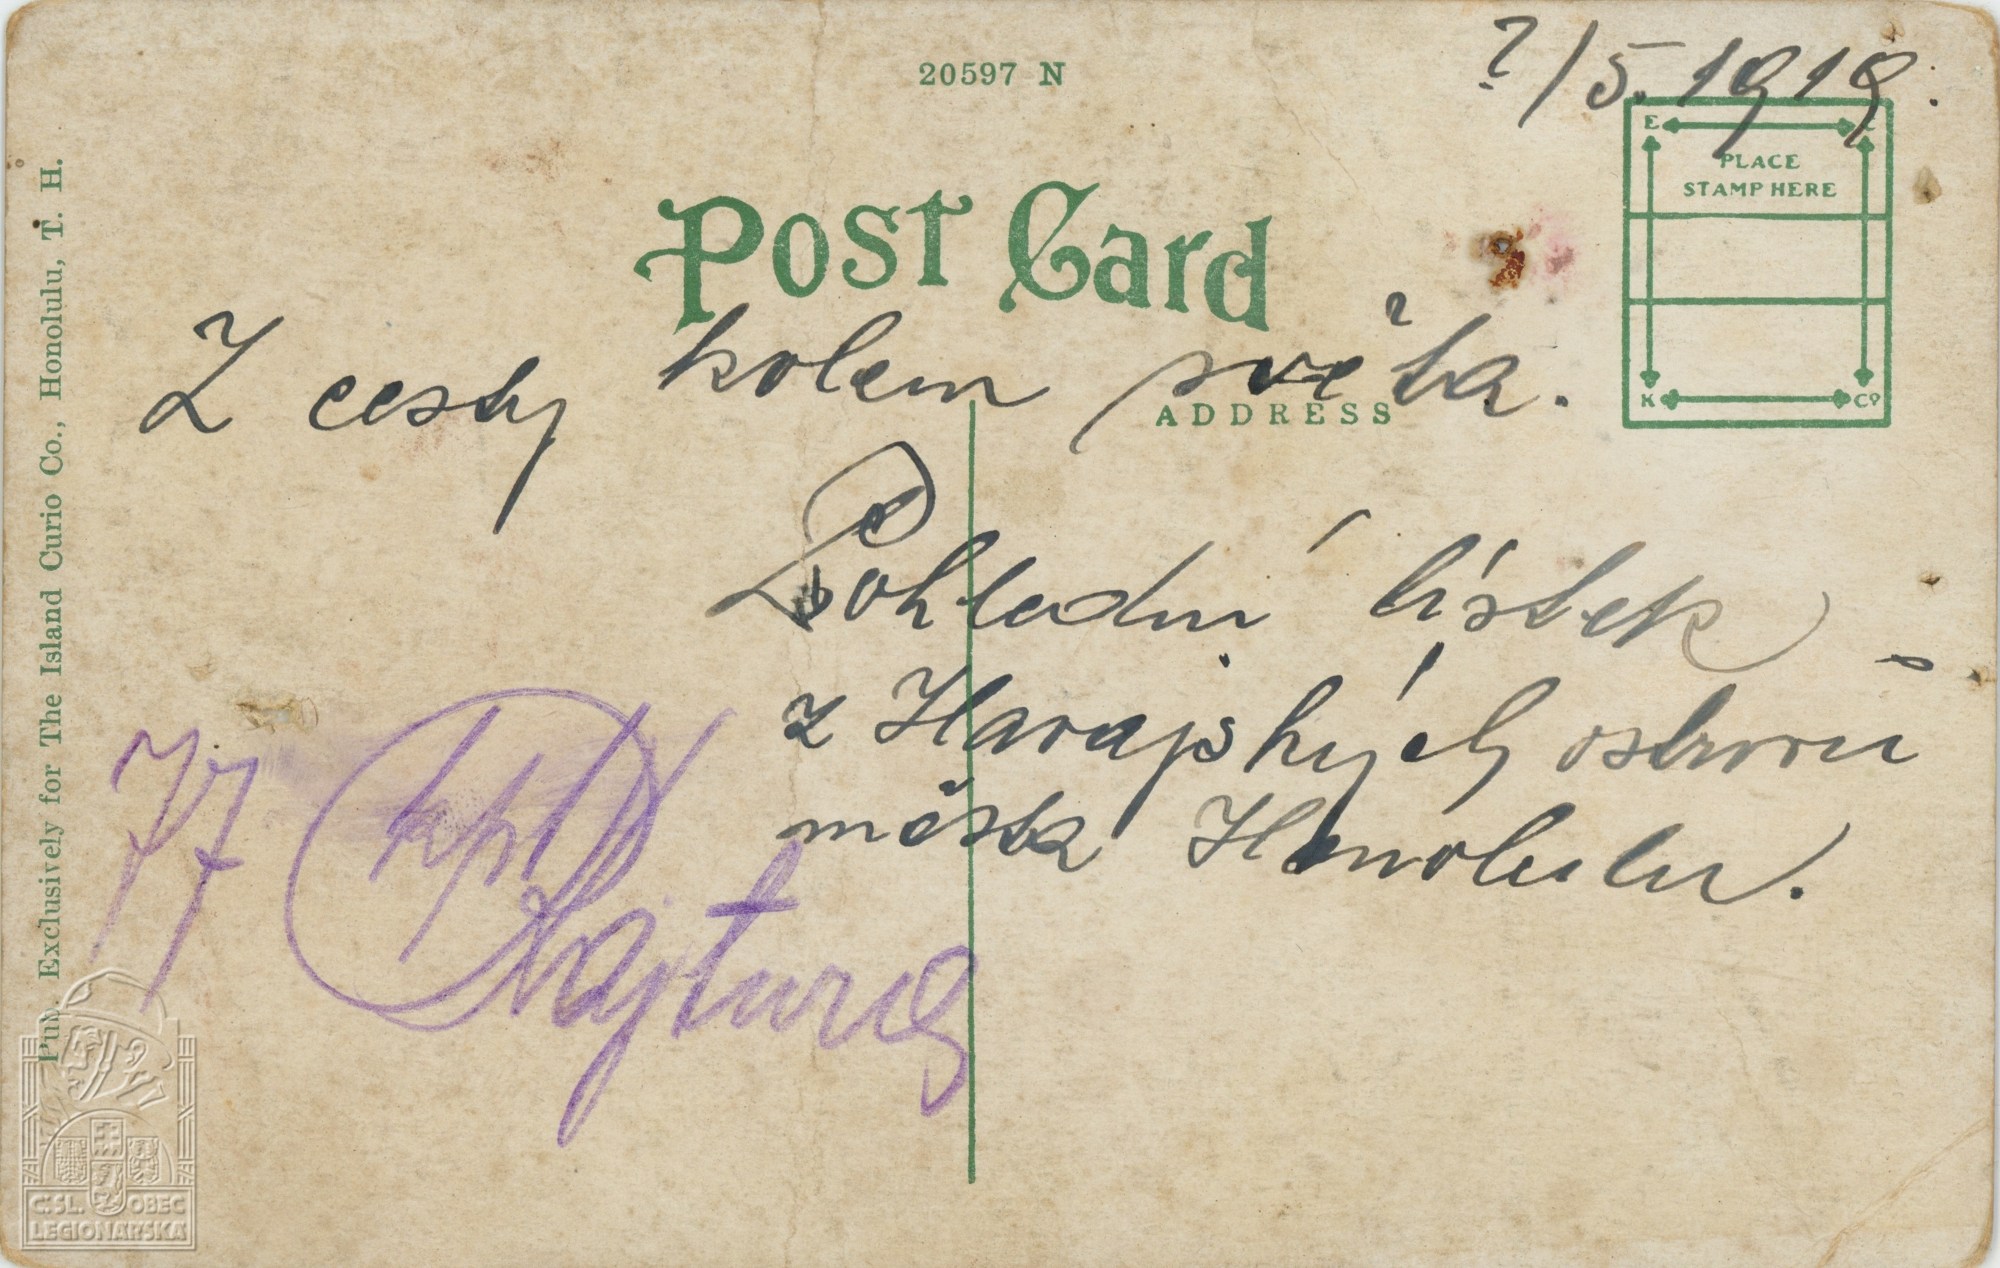 ?/5. 1919.
20597 N
Post Card
PLACE
STAMP HERE
E K
K Co
Z cesty kolem světa.
ADDRESS
Pohlední lístek
z Havajských ostrovů
města Honolulu.
77 kpt
Hajtura
Pub. Exclusively for The Island Curio Co., Honolulu, T. H.
Č.SL. OBEC
LEGIONÁŘSKÁ